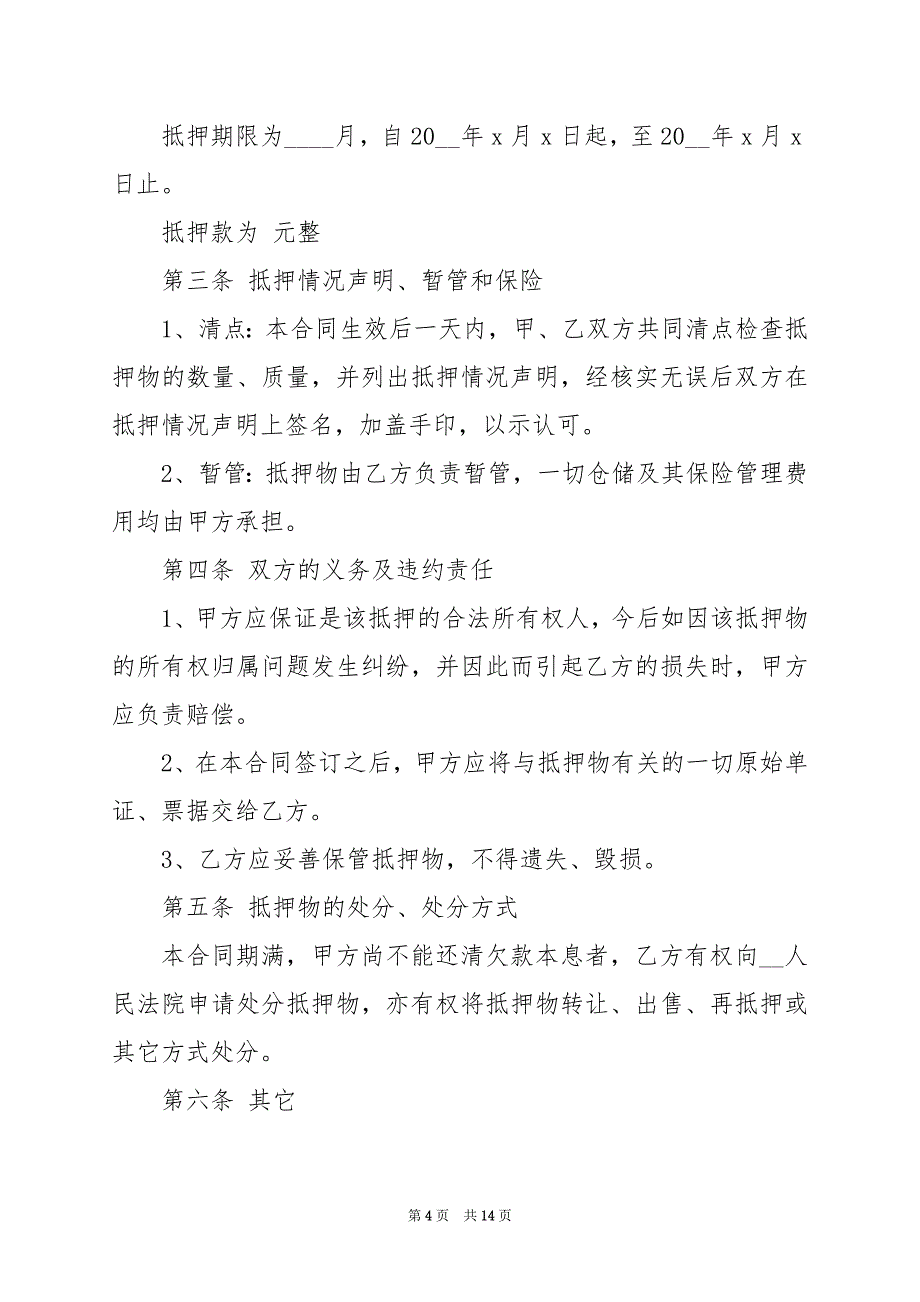 抵押期限为____月，自 20__年 x 月 x 日起，至 20__年 x 月 x
日止。
抵押款为 元整
第三条 抵押情况声明、暂管和保险
1、清点：本合同生效后一天内，甲、乙双方共同清点检查抵
押物的数量、质量，并列出抵押情况声明，经核实无误后双方在
抵押情况声明上签名，加盖手印，以示认可。
2、暂管：抵押物由乙方负责暂管，一切仓储及其保险管理费
用均由甲方承担。
第四条 双方的义务及违约责任
1、甲方应保证是该抵押的合法所有权人，今后如因该抵押物
的所有权归属问题发生纠纷，并因此而引起乙方的损失时，甲方
应负责赔偿。
2、在本合同签订之后，甲方应将与抵押物有关的一切原始单
证、票据交给乙方。
3、乙方应妥善保管抵押物，不得遗失、毁损。
第五条 抵押物的处分、处分方式
本合同期满，甲方尚不能还清欠款本息者，乙方有权向__人
民法院申请处分抵押物，亦有权将抵押物转让、出售、再抵押或
其它方式处分。
第六条 其它
第 4 页 共 14 页